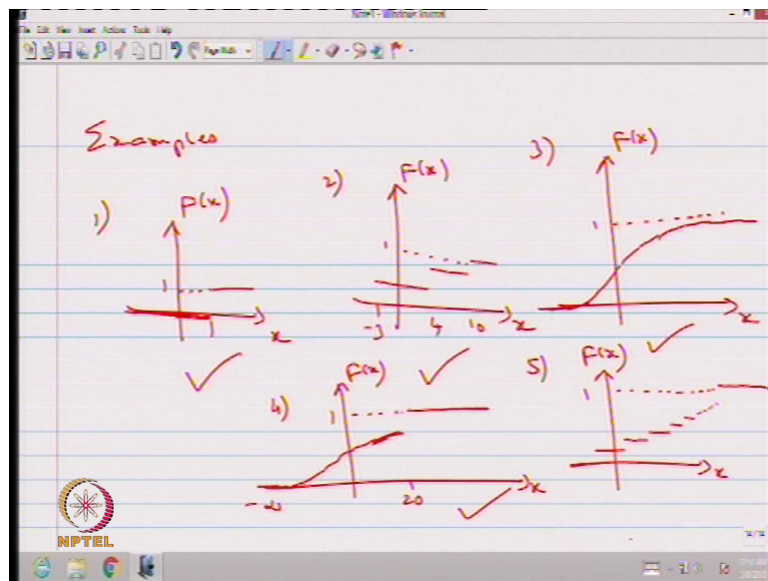 Note1 - Windows Journal
File Edit View Insert Actions Tools Help
Page Width
Examples
1)
F(x)
1
1
x
2)
F(x)
1
-3
4
10
x
3)
F(x)
1
x
4)
F(x)
1
-∞
20
x
5)
F(x)
1
x
NPTEL